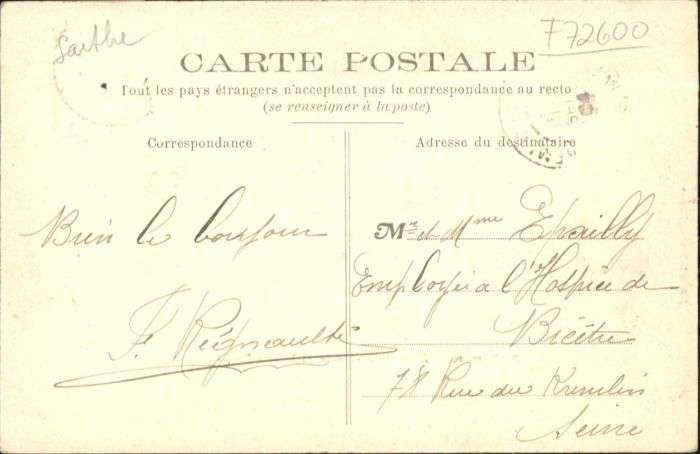 Sarthe
F72600
CARTE POSTALE
Tout les pays étrangers n'acceptent pas la correspondance au recto
(se renseigner à la poste)
Correspondance
Adresse du destinataire
Bien le bonjour
F. Reigneault
Mr et Mme Epailly
Employés à l'Hospice de
Bicêtre
78 Rue du Kremlin
Seine